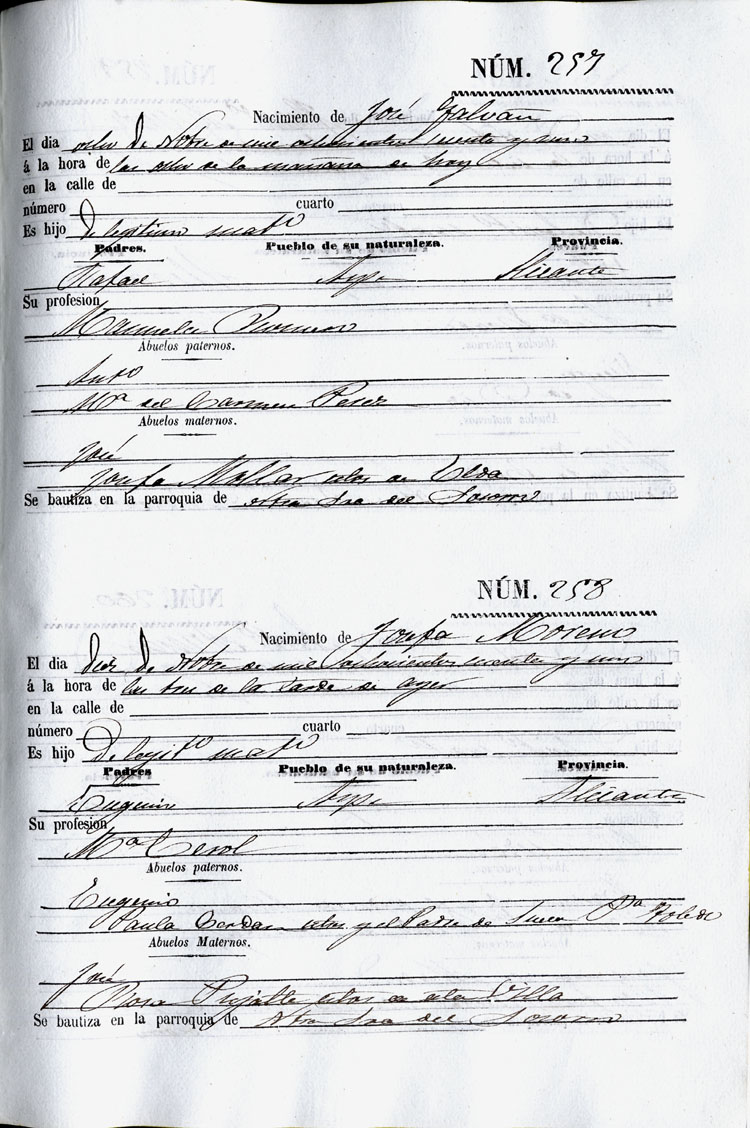 NÚM. 257
Nacimiento de José Galvañ
El dia ocho de Nobre de mil ochocientos y uno
á la hora de las ocho de la mañana de hoy
en la calle de
número cuarto
Es hijo de legitimo matº
Padres. Pueblo de su naturaleza. Provincia.
Rafael Aspe Alicante
Su profesion
Manuela Romero
Abuelos paternos.
Antº
Mª del Carmen Perez
Abuelos maternos.
José
Josefa Mollar estos de Elda
Se bautiza en la parroquia de Ntra Sra del Socorro
NÚM. 258
Nacimiento de Josefa Moreno
El dia diez de Nobre de mil ochocientos y uno
á la hora de las tres de la tarde de ayer
en la calle de
número cuarto
Es hijo de legitº matº
Padres Pueblo de su naturaleza. Provincia.
Eugenio Aspe Alicante
Su profesion
Mª Cerol
Abuelos paternos.
Eugenio
Paula Cerdan estos y el Padre de Pª Toledo
Abuelos Maternos.
José
Rosa estos de esta Villa
Se bautiza en la parroquia de Ntra Sra del Socorro